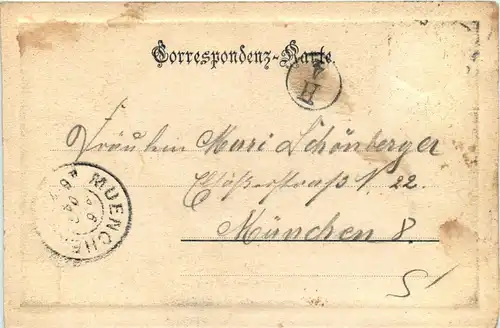 Correspondenz-Karte.
4
H
Fräulein Mari Schönberger
22.
München 8.
MUENCHE